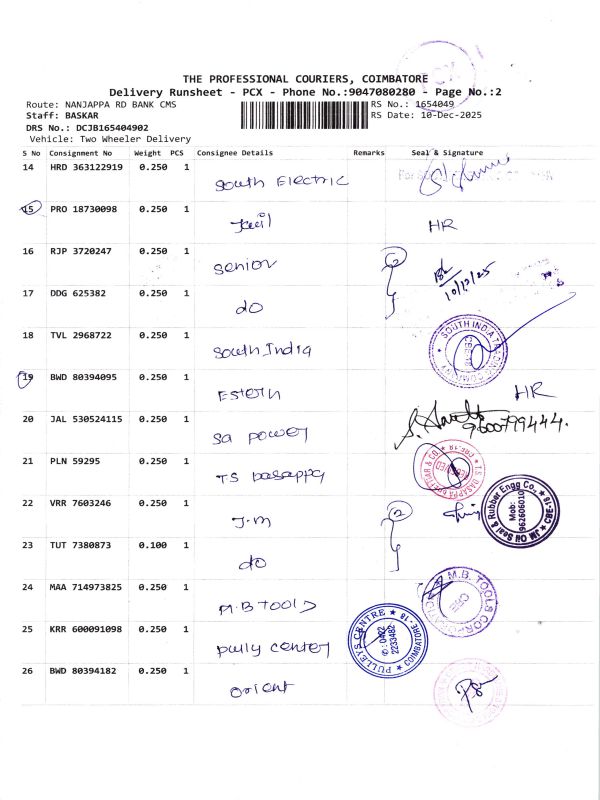 THE PROFESSIONAL COURIERS, COIMBATORE
Delivery Runsheet - PCX - Phone No.:9047080280 - Page No.:2
Route: NANJAPPA RD BANK CMS RS No.: 1654049
Staff: BASKAR RS Date: 10-Dec-2025
DRS No.: DCJB165404902
Vehicle: Two Wheeler Delivery
S No Consignment No Weight PCS Consignee Details Remarks Seal & Signature
14 HRD 363122919 0.250 1 South Electric
15 PRO 18730098 0.250 1 HR
16 RJP 3720247 0.250 1 Senior 2 10/12/25
17 DDG 625382 0.250 1 do
18 TVL 2968722 0.250 1 South India SOUTH INDIA TRADING COMPANY
19 BWD 80394095 0.250 1 Estern HR
20 JAL 530524115 0.250 1 Sa power 9600799444.
21 PLN 59295 0.250 1 TS basappa
22 VRR 7603246 0.250 1 J.M 2 JM Oil Seal & Rubber Engg Co., CBE-18 Mob: 962606010
23 TUT 7380873 0.100 1 do
24 MAA 714973825 0.250 1 M.B TOOLS M.B. TOOLS CORPORATION CBE
25 KRR 600091098 0.250 1 pully center PULLEYS CENTRE COIMBATORE - 18 0422 2233482
26 BWD 80394182 0.250 1 orient